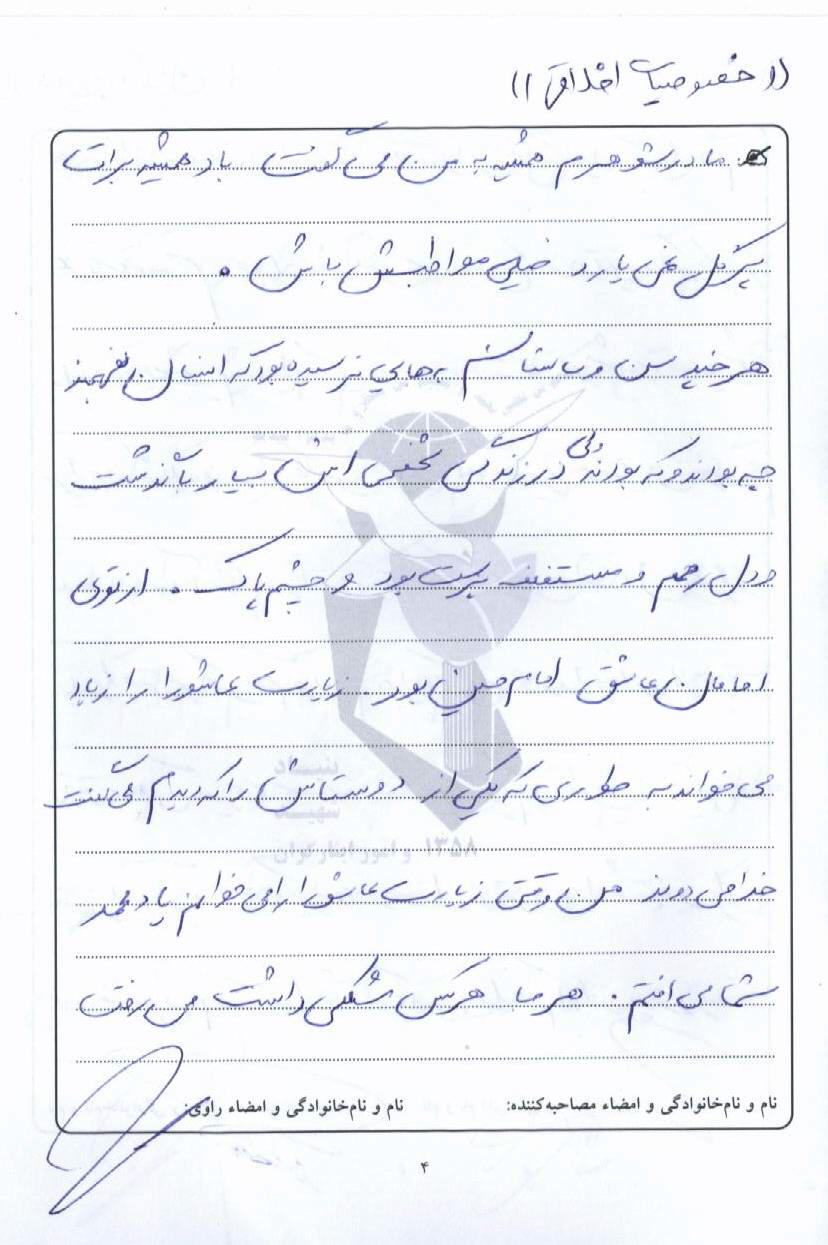 (( خصوصیات اخلاقی ))
مادرشوهرم همیشه به من می گفت باد همیشه برات
پر گل نمی یارد خیلی مواظبش باش .
هر چند سن و سالشان به جایی نرسیده بود که انسان بفهمد
چه بودند و که بودند ولی در زندگی شخصی اش بسیار با گذشت
و دل رحم و مستضعف پرست بود و چشم پاک . از توی
امامان عاشق امام حسین بود . زیارت عاشورا را زیاد
می خواند به طوری که یکی از دوستاش را که دیدم می گفت
خدا می دوند من وقتی زیارت عاشورا را می خوانم یاد محمد
شما می افتم . هر جا هرکس مشکلی داشت می رفت
نام و نام‌خانوادگی و امضاء مصاحبه‌کننده: نام و نام‌خانوادگی و امضاء راوی:
۴
بنیاد
شهید
و امور ایثارگران ۱۳۵۸